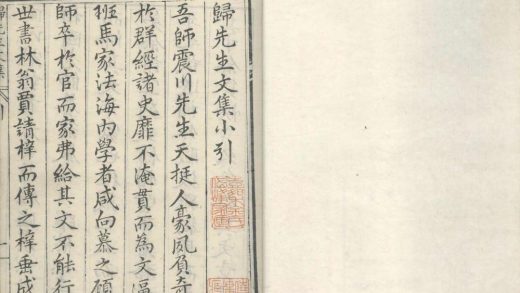 歸先生文集小引
吾師震川先生天挺人豪夙負奇
於群經諸史靡不淹貫而為文逼
班馬家法海内學者咸向慕之顧
師卒於官而家弗給其文不能行
世書林翁賈請梓而傳之梓垂成
歸先生文集
引